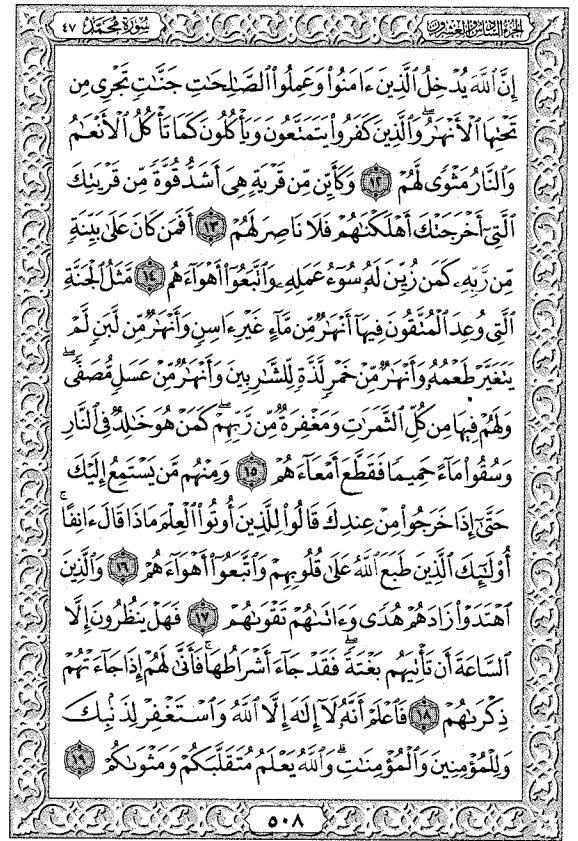 الجزء السادس والعشرون
سورة محمد ٤٧
إِنَّ ٱللَّهَ يُدْخِلُ ٱلَّذِينَ ءَامَنُواْ وَعَمِلُواْ ٱلصَّٰلِحَٰتِ جَنَّٰتٍ تَجْرِى مِن
تَحْتِهَا ٱلْأَنْهَٰرُ ۖ وَٱلَّذِينَ كَفَرُواْ يَتَمَتَّعُونَ وَيَأْكُلُونَ كَمَا تَأْكُلُ ٱلْأَنْعَٰمُ
وَٱلنَّارُ مَثْوًى لَّهُمْ ١٢ وَكَأَيِّن مِّن قَرْيَةٍ هِىَ أَشَدُّ قُوَّةً مِّن قَرْيَتِكَ
ٱلَّتِىٓ أَخْرَجَتْكَ أَهْلَكْنَٰهُمْ فَلَا نَاصِرَ لَهُمْ ١٣ أَفَمَن كَانَ عَلَىٰ بَيِّنَةٍ
مِّن رَّبِّهِۦ كَمَن زُيِّنَ لَهُۥ سُوٓءُ عَمَلِهِۦ وَٱتَّبَعُوٓاْ أَهْوَآءَهُم ١٤ مَّثَلُ ٱلْجَنَّةِ
ٱلَّتِى وُعِدَ ٱلْمُتَّقُونَ فِيهَآ أَنْهَٰرٌ مِّن مَّآءٍ غَيْرِ ءَاسِنٍ وَأَنْهَٰرٌ مِّن لَّبَنٍ لَّمْ
يَتَغَيَّرْ طَعْمُهُۥ وَأَنْهَٰرٌ مِّنْ خَمْرٍ لَّذَّةٍ لِّلشَّٰرِبِينَ وَأَنْهَٰرٌ مِّنْ عَسَلٍ مُّصَفًّى ۖ
وَلَهُمْ فِيهَا مِن كُلِّ ٱلثَّمَرَٰتِ وَمَغْفِرَةٌ مِّن رَّبِّهِمْ ۖ كَمَنْ هُوَ خَٰلِدٌ فِى ٱلنَّارِ
وَسُقُواْ مَآءً حَمِيمًا فَقَطَّعَ أَمْعَآءَهُمْ ١٥ وَمِنْهُم مَّن يَسْتَمِعُ إِلَيْكَ
حَتَّىٰٓ إِذَا خَرَجُواْ مِنْ عِندِكَ قَالُواْ لِلَّذِينَ أُوتُواْ ٱلْعِلْمَ مَاذَا قَالَ ءَانِفًا ۚ
أُوْلَٰٓئِكَ ٱلَّذِينَ طَبَعَ ٱللَّهُ عَلَىٰ قُلُوبِهِمْ وَٱتَّبَعُوٓاْ أَهْوَآءَهُمْ ١٦ وَٱلَّذِينَ
ٱهْتَدَوْاْ زَادَهُمْ هُدًى وَءَاتَىٰهُمْ تَقْوَىٰهُمْ ١٧ فَهَلْ يَنظُرُونَ إِلَّا
ٱلسَّاعَةَ أَن تَأْتِيَهُم بَغْتَةً ۖ فَقَدْ جَآءَ أَشْرَاطُهَا ۚ فَأَنَّىٰ لَهُمْ إِذَا جَآءَتْهُمْ
ذِكْرَىٰهُمْ ١٨ فَٱعْلَمْ أَنَّهُۥ لَآ إِلَٰهَ إِلَّا ٱللَّهُ وَٱسْتَغْفِرْ لِذَنۢبِكَ
وَلِلْمُؤْمِنِينَ وَٱلْمُؤْمِنَٰتِ ۗ وَٱللَّهُ يَعْلَمُ مُتَقَلَّبَكُمْ وَمَثْوَىٰكُمْ ١٩
٥٠٨